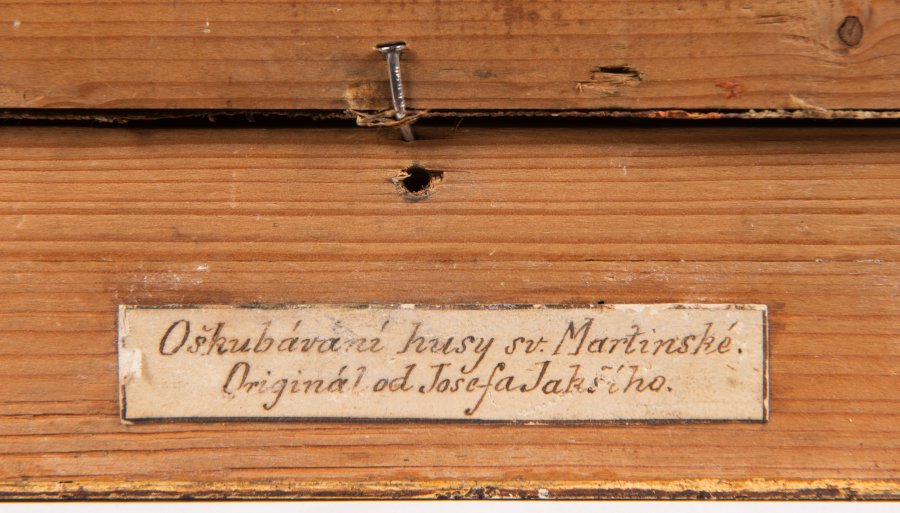 Oškubávaní husy sv. Martinské.
Originál od Josefa Jakšího.